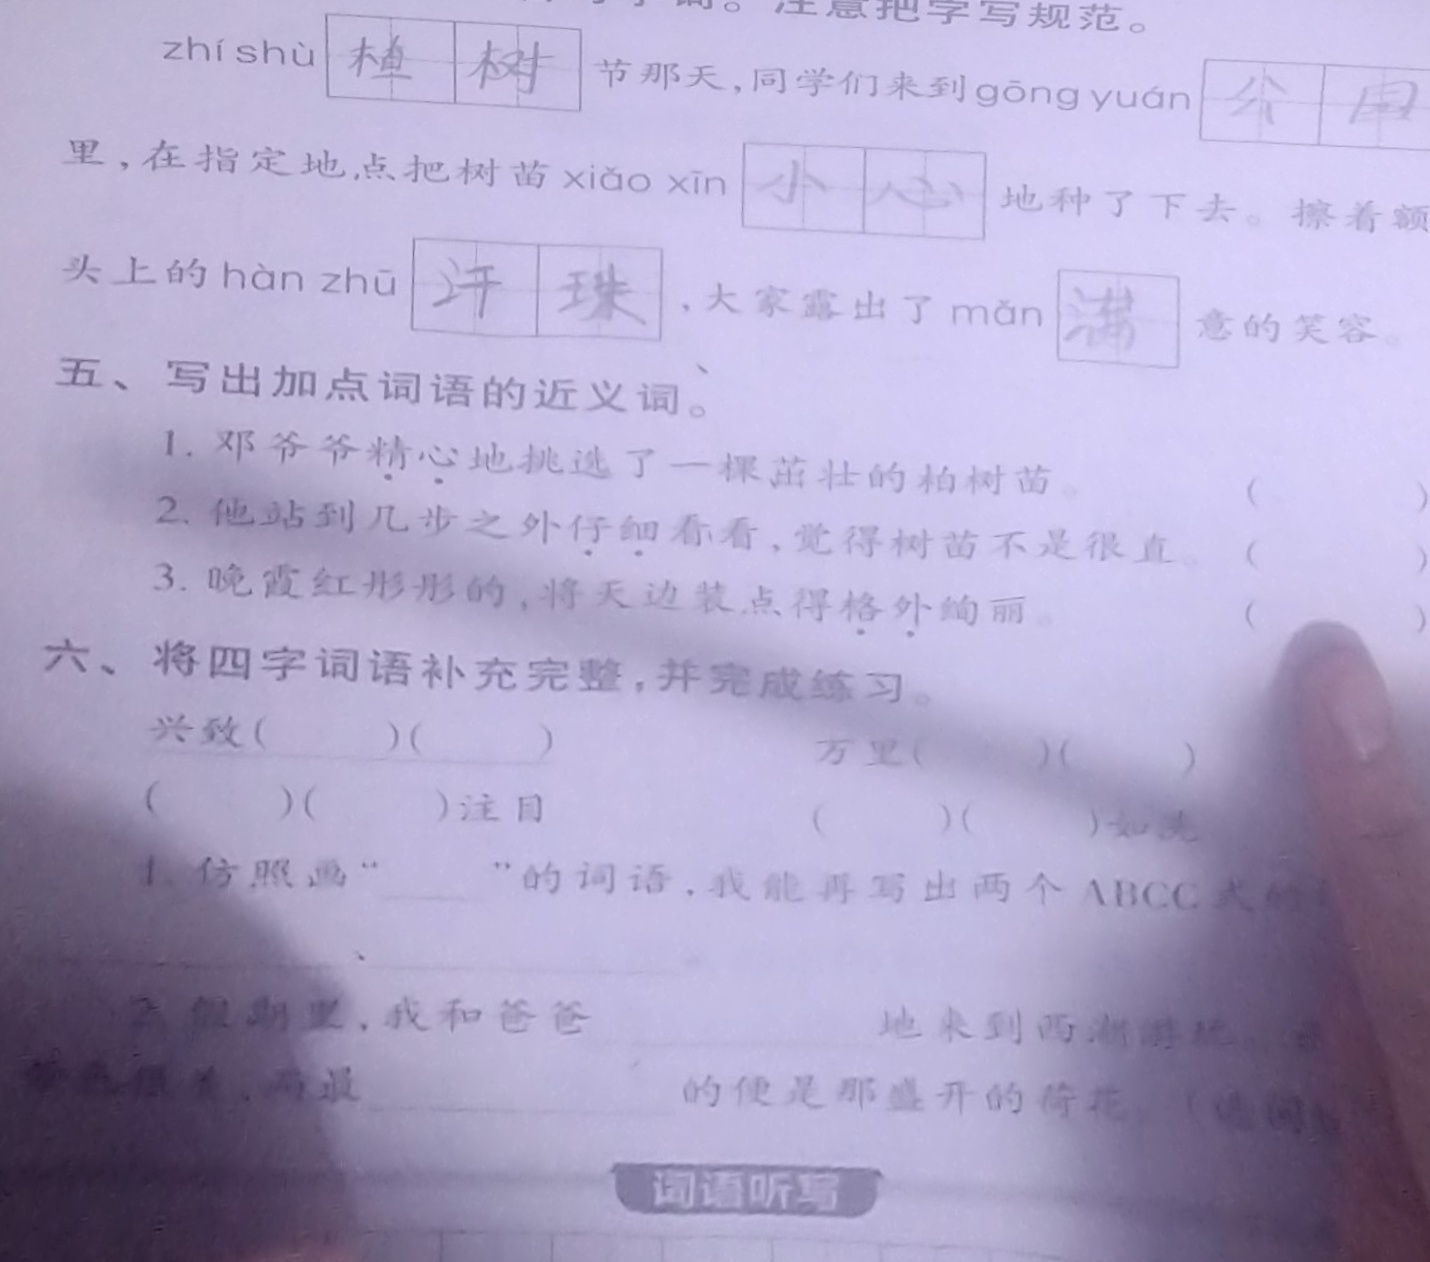 注意把字写规范。
zhí shù 植树 节那天,同学们来到 gōng yuán 公
里,在指定地点把树苗 xiǎo xīn 小心 地种了下去。擦着额
头上的 hàn zhū 汗珠 ,大家露出了 mǎn 满 意的笑容。
五、写出加点词语的近义词。
1. 邓爷爷精心地挑选了一棵茁壮的柏树苗。 ( )
2. 他站到几步之外仔细看看,觉得树苗不是很直。 ( )
3. 晚霞红彤彤的,将天边装点得格外绚丽。 ( )
六、将四字词语补充完整,并完成练习。
兴致( )( ) 万里( )( )
( )( )注目 ( )( )如洗
1. 仿照画“____”的词语,我能再写出两个 ABCC 式的
、 。
2. 假期里,我和爸爸 地来到西湖游玩。
而最 的便是那盛开的荷花。
词语听写